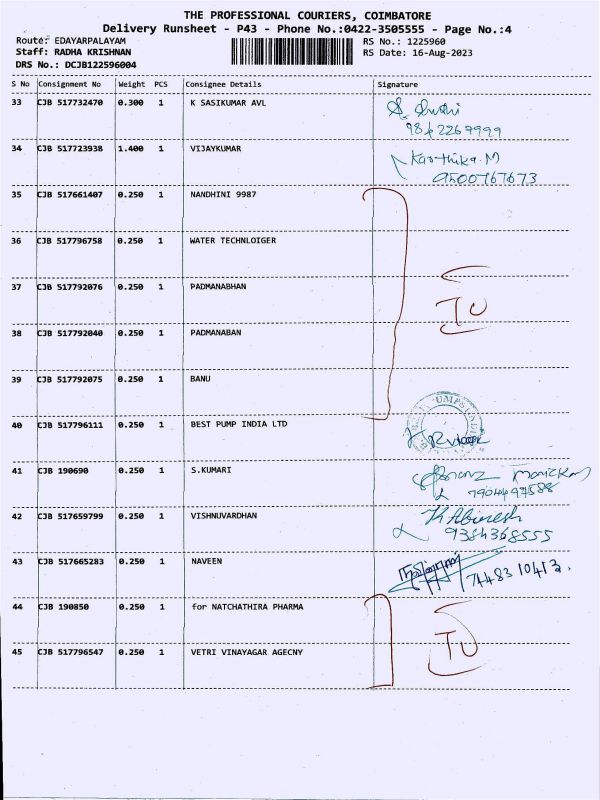 THE PROFESSIONAL COURIERS, COIMBATORE
Delivery Runsheet - P43 - Phone No.:0422-3505555 - Page No.:4
Route: EDAYARPALAYAM RS No.: 1225960
Staff: RADHA KRISHNAN RS Date: 16-Aug-2023
DRS No.: DCJB122596004
S No Consignment No Weight PCS Consignee Details Signature
33 CJB 517732470 0.300 1 K SASIKUMAR AVL
34 CJB 517723938 1.400 1 VIJAYKUMAR Karthika.M
9500767673
35 CJB 517661407 0.250 1 NANDHINI 9987
36 CJB 517796758 0.250 1 WATER TECHNLOIGER
37 CJB 517792076 0.250 1 PADMANABHAN
TU
38 CJB 517792040 0.250 1 PADMANABAN
39 CJB 517792075 0.250 1 BANU
40 CJB 517796111 0.250 1 BEST PUMP INDIA LTD
41 CJB 190690 0.250 1 S.KUMARI
42 CJB 517659799 0.250 1 VISHNUVARDHAN K Abinesh
9384368555
43 CJB 517665283 0.250 1 NAVEEN 7448310413.
44 CJB 190850 0.250 1 for NATCHATHIRA PHARMA
TU
45 CJB 517796547 0.250 1 VETRI VINAYAGAR AGECNY